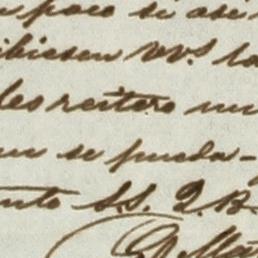 poco si asi
ibiesen VV.S. lo
les reitero mi
que se pueda-
ento S.S. Q.B.